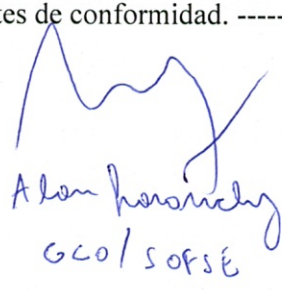 tes de conformidad. -----
Alan
GCO/SOFSE